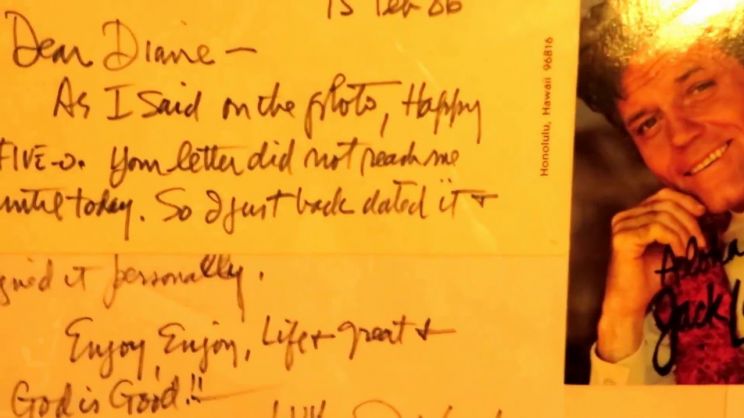 15 Feb 86
Dear Diane —
As I Said on the photo, Happy
FIVE-O. Your letter did not reach me
until today. So I just back dated it +
gned it personally.
Enjoy, Enjoy, Life + great +
God is Good!!
Honolulu, Hawaii 96816
Aloha
Jack L